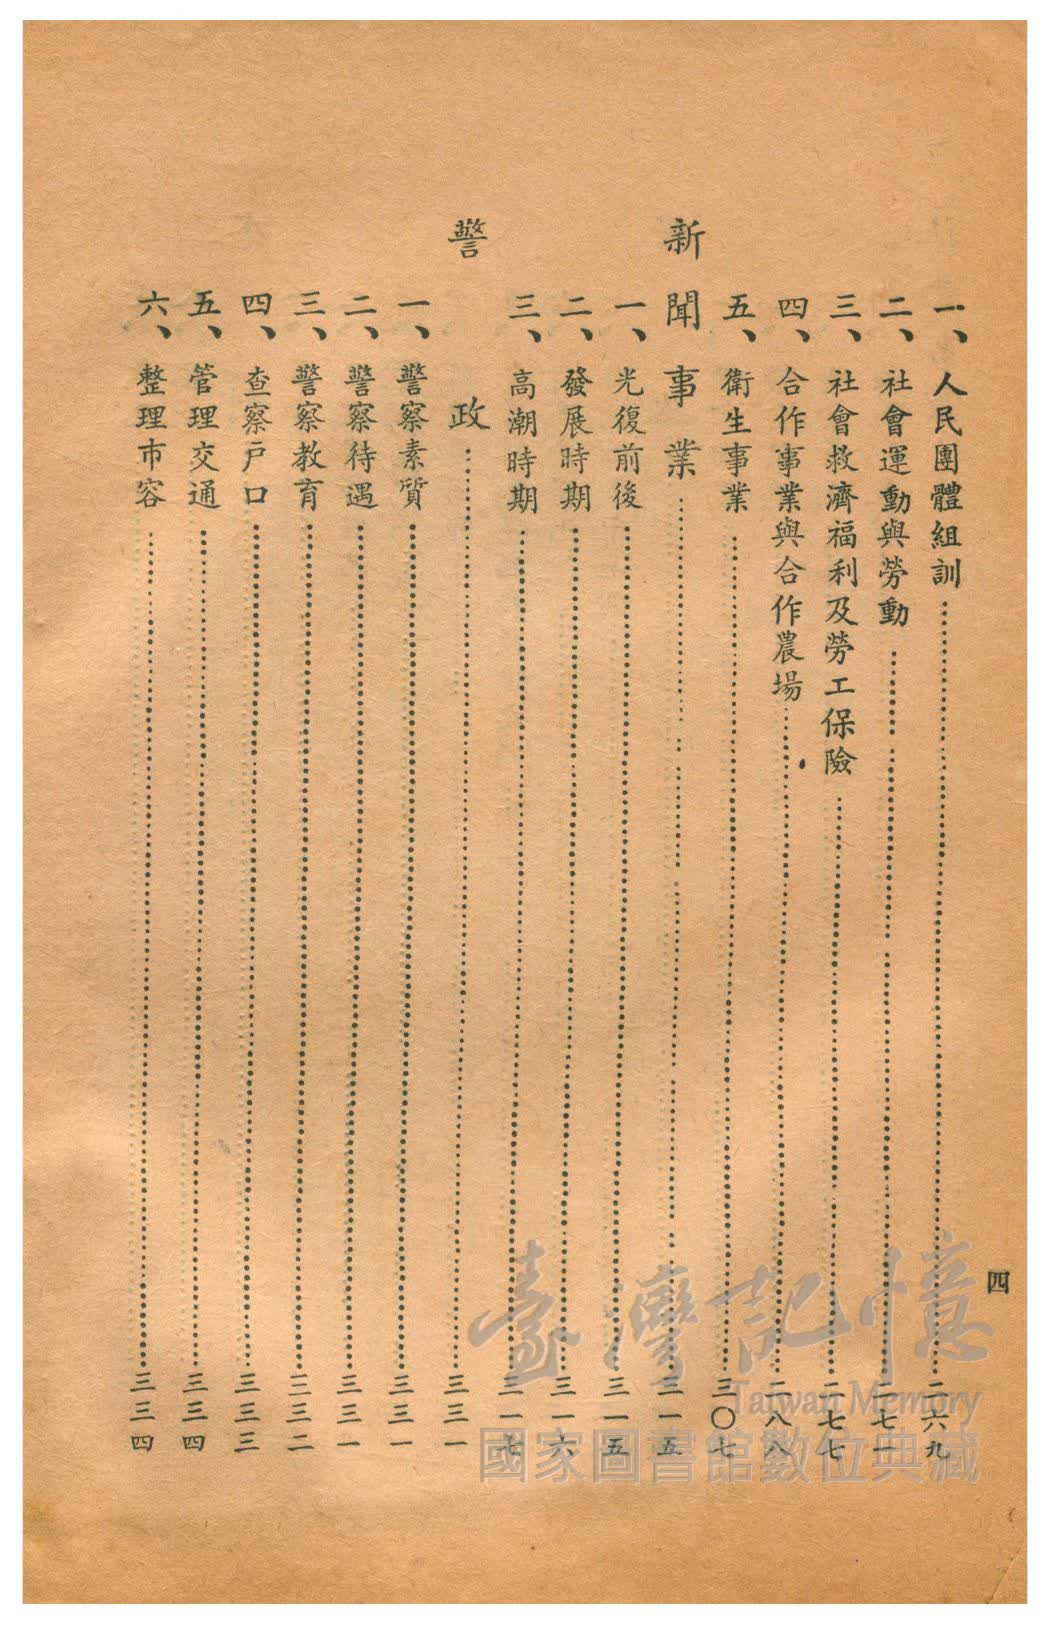 一、人民團體組訓……二六九
二、社會運動與勞動……二七一
三、社會救濟福利及勞工保險……二七七
四、合作事業與合作農場……二八八
五、衛生事業……三〇七
新聞事業……三一五
一、光復前後……三一五
二、發展時期……三一六
三、高潮時期……三一七
警政……三三一
一、警察素質……三三一
二、警察待遇……三三一
三、警察教育……三三二
四、查察戶口……三三三
五、管理交通……三三四
六、整理市容……三三四
四
臺灣記憶
Taiwan Memory
國家圖書館數位典藏